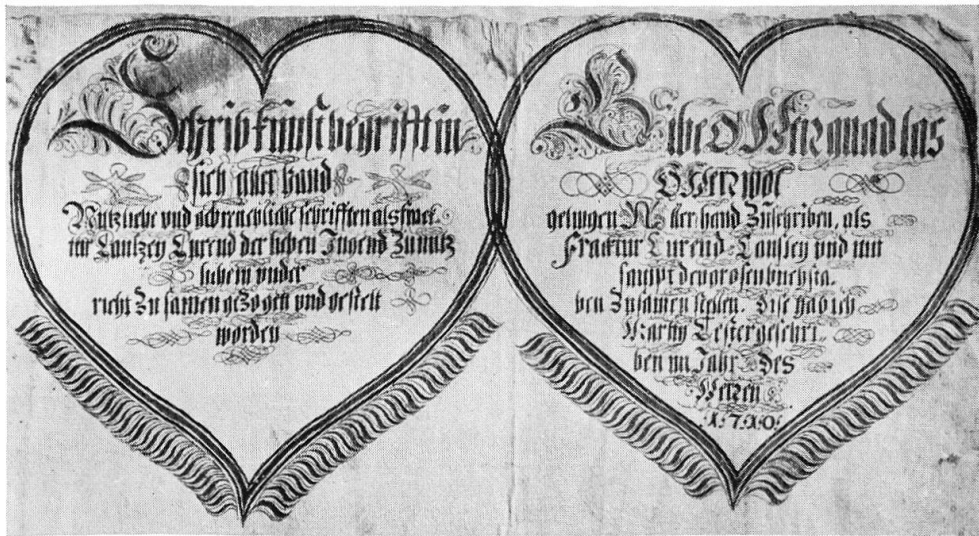 Schribkunst begrifft in
sich aller hand
Nutzliche und schrifften als frac
tur Cantzley Curend der lieben Jugend zu nutz
under
richt Zu samen gezogen und gestelt
worden
Gibe O Herr gnad las
O Herr wol
gelingen Aller hand Zuschriben, als
Fraktur Curend Canssley und mit
sampt den grosen buchsta.
ben Zusamen stelen. Dise hab ich
geschri.
ben im Jahr des
Herren
1710